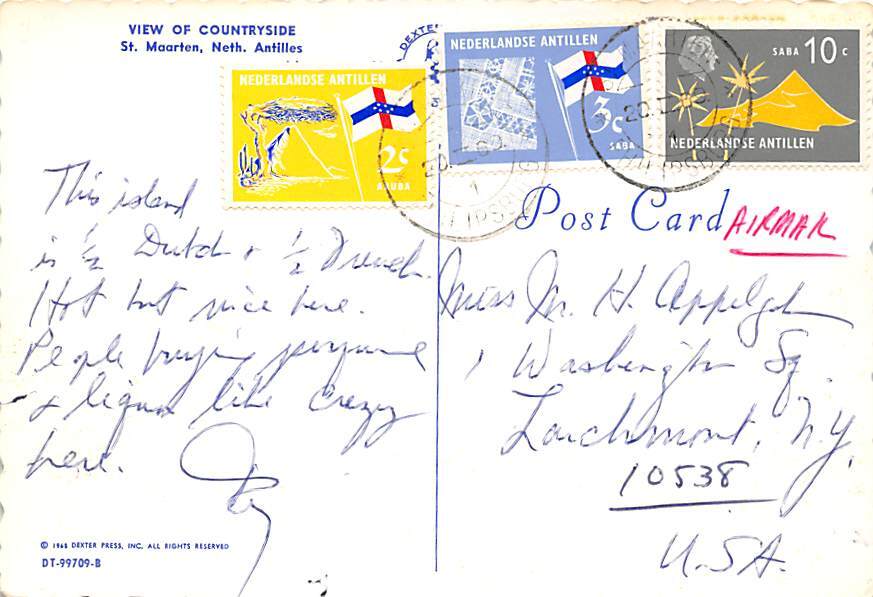 VIEW OF COUNTRYSIDE
St. Maarten, Neth. Antilles
DEXTER
NEDERLANDSE ANTILLEN
2c
ARUBA
NEDERLANDSE ANTILLEN
3c
SABA
SABA 10 c
NEDERLANDSE ANTILLEN
Post Card
AIRMAIL
This island
is ½ Dutch + ½ French.
Hot but nice here.
People buying perfume
& liquor like crazy
here.
Miss M. H.
1 Washington Sq.
Larchmont, N.Y.
10538
U.S.A.
© 1968 DEXTER PRESS, INC. ALL RIGHTS RESERVED
DT-99709-B